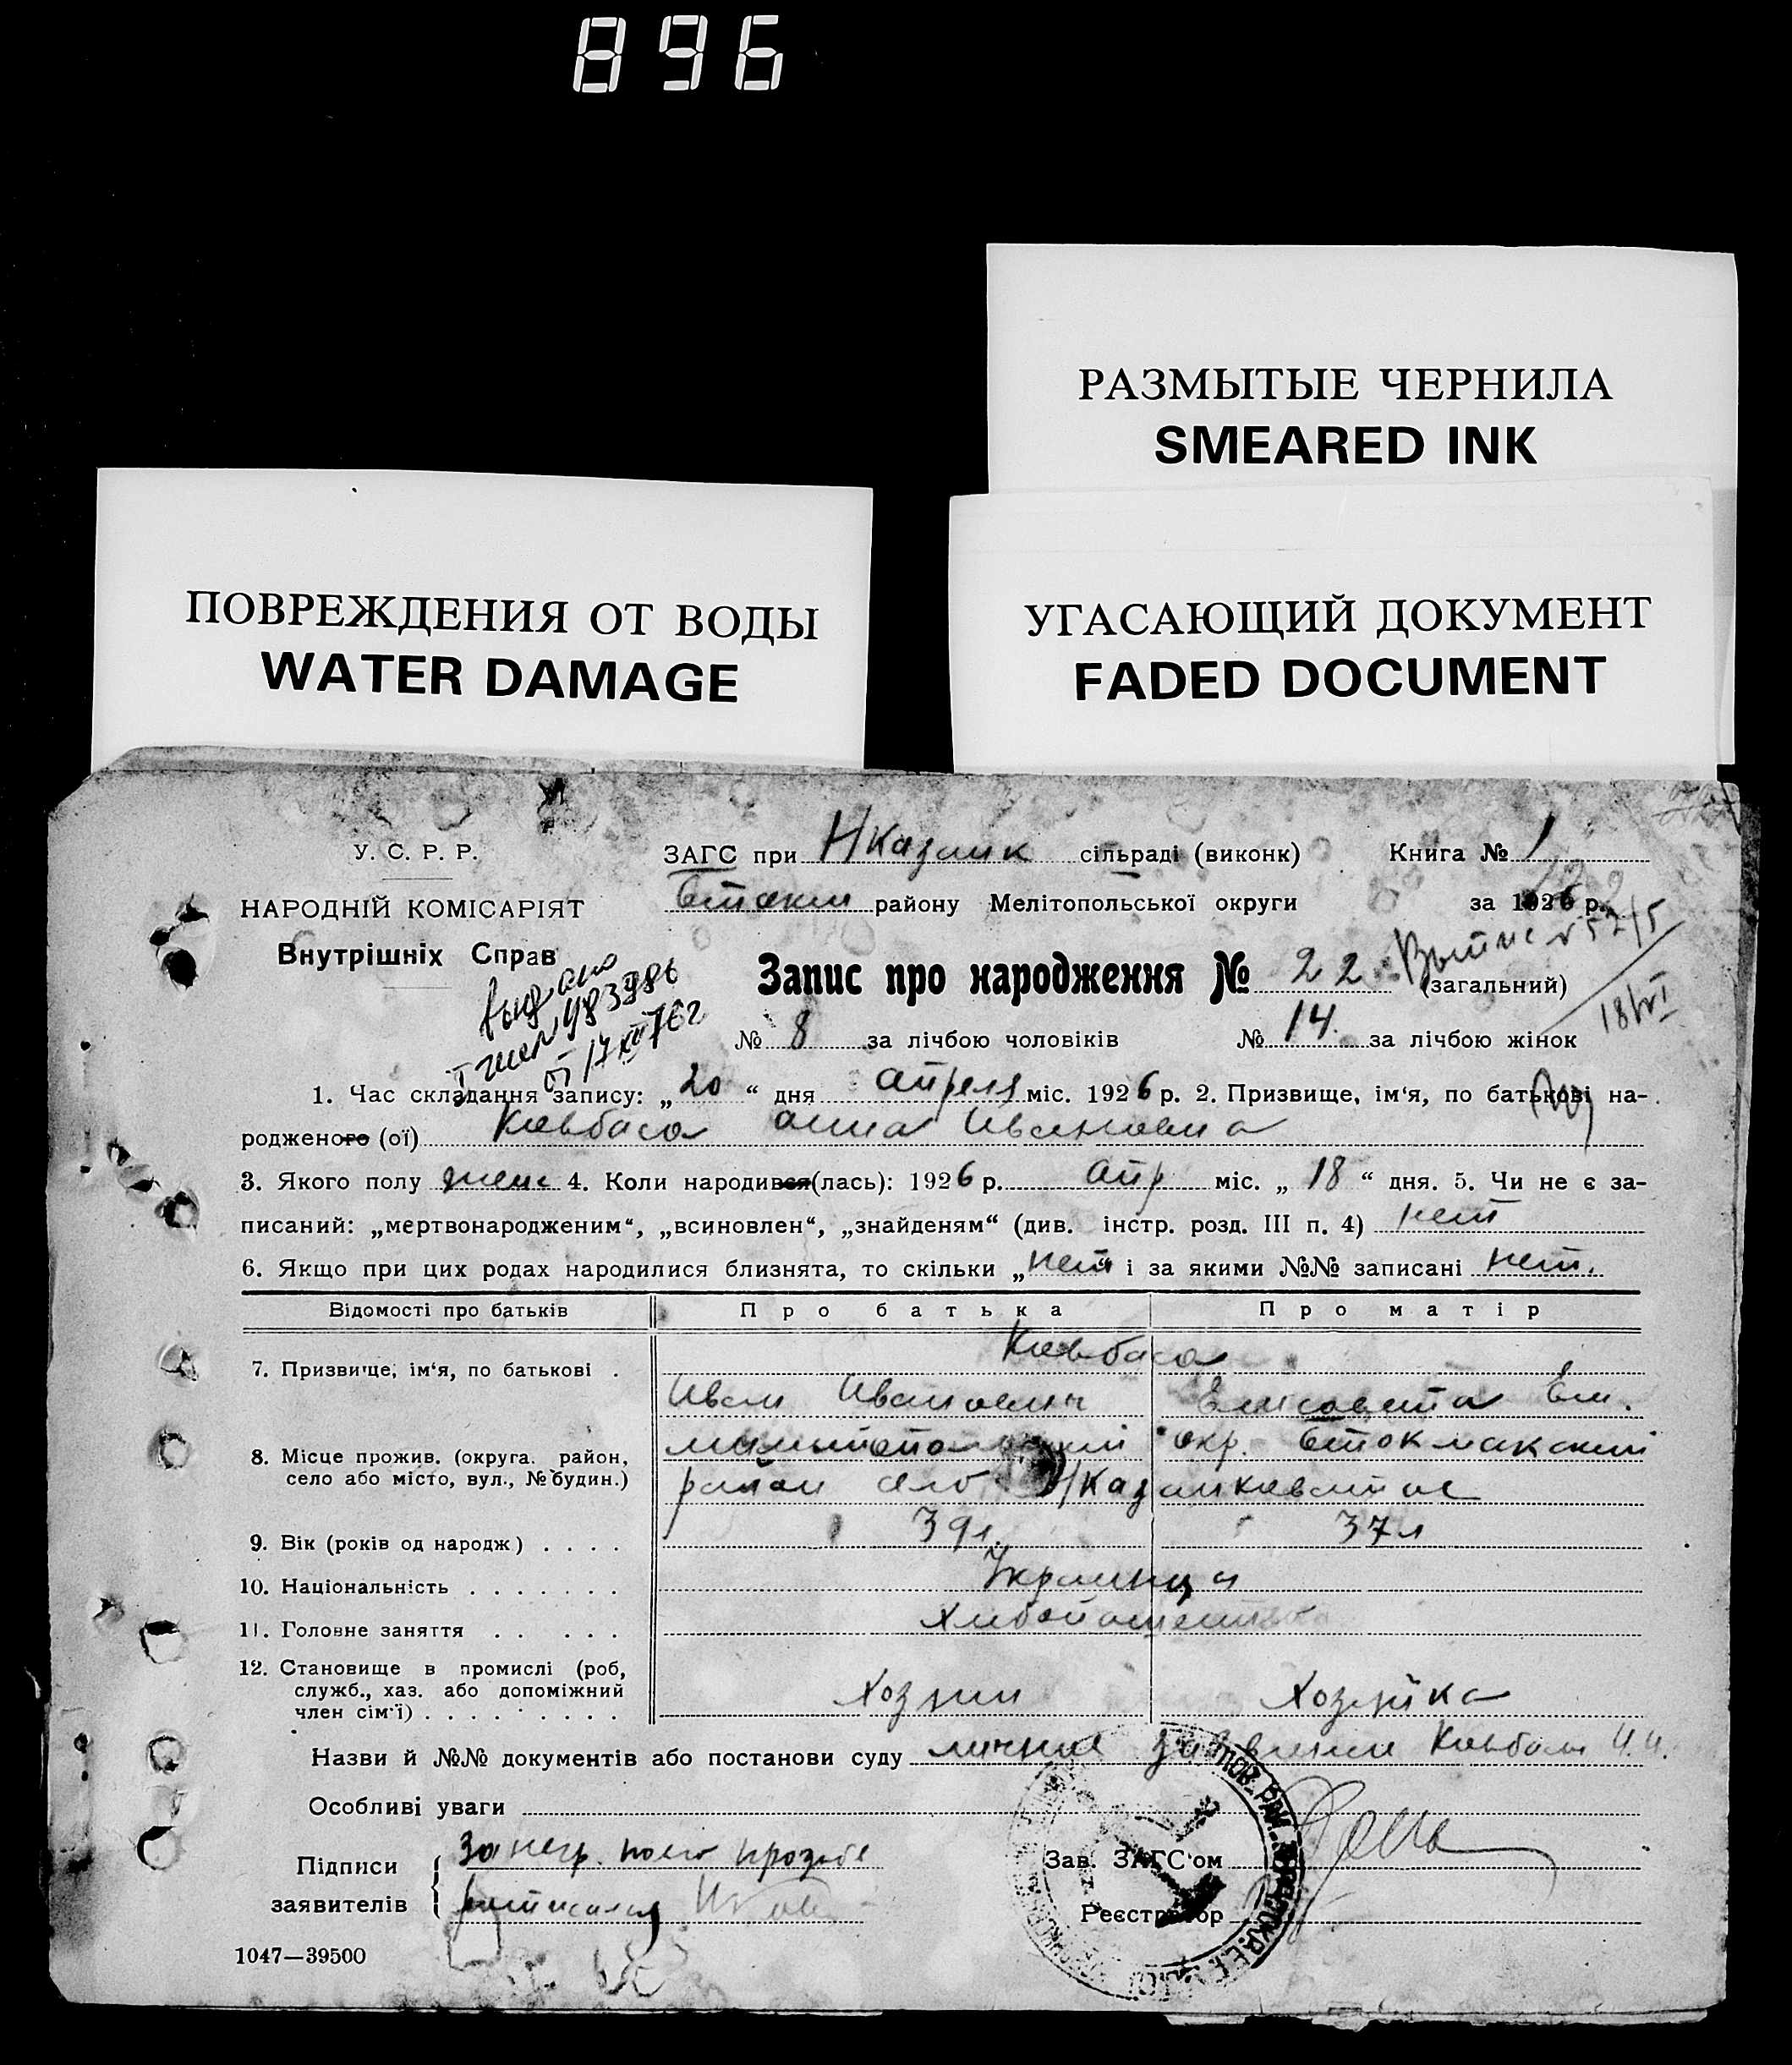 896
РАЗМЫТЫЕ ЧЕРНИЛА
SMEARED INK
ПОВРЕЖДЕНИЯ ОТ ВОДЫ
WATER DAMAGE
УГАСАЮЩИЙ ДОКУМЕНТ
FADED DOCUMENT
У. С. Р. Р.
НАРОДНІЙ КОМІСАРІЯТ
Внутрішніх Справ
ЗАГС при сільраді (виконк) Книга № 1
району Мелітопольської округи за 1926 р.
Запис про народження № 22
(загальний)
№ 8 за лічбою чоловіків № 14. за лічбою жінок
1. Час складання запису: „20“ дня апреля міс. 1926 р. 2. Призвище, ім‘я, по батькові на-
родженого (ої) Ковбаса Анна Ивановна
3. Якого полу жен 4. Коли народився(лась): 1926 р. апр міс. „18“ дня. 5. Чи не є за-
писаний: „мертвонародженим“, „всиновлен“, „знайденям“ (див. інстр. розд. III п. 4) нет
6. Якщо при цих родах народилися близнята, то скільки „нет“ і за якими №№ записані нет.
Відомості про батьків Про батька Про матір
7. Призвище, ім‘я, по батькові . Ковбаса
Иван Иванович Елисавета Ем.
8. Місце прожив. (округа. район,
село або місто, вул., № будин.)
окр.
район село
9. Вік (років од народж) . . . . 39 л. 37 л
10. Національність . . . . . . . Украинцы
11. Головне заняття . . . . .
12. Становище в промислі (роб,
служб., хаз. або допоміжний
член сім‘ї) . . . . . . . . . Хозяин Хозяйка
Назви й №№ документів або постанови суду личное заявление Ковбаса И.И.
Особливі уваги
Підписи
заявителів
За негр. его прозьбе
росписался
Зав. ЗАГС‘ом
Реєстратор
1047—39500